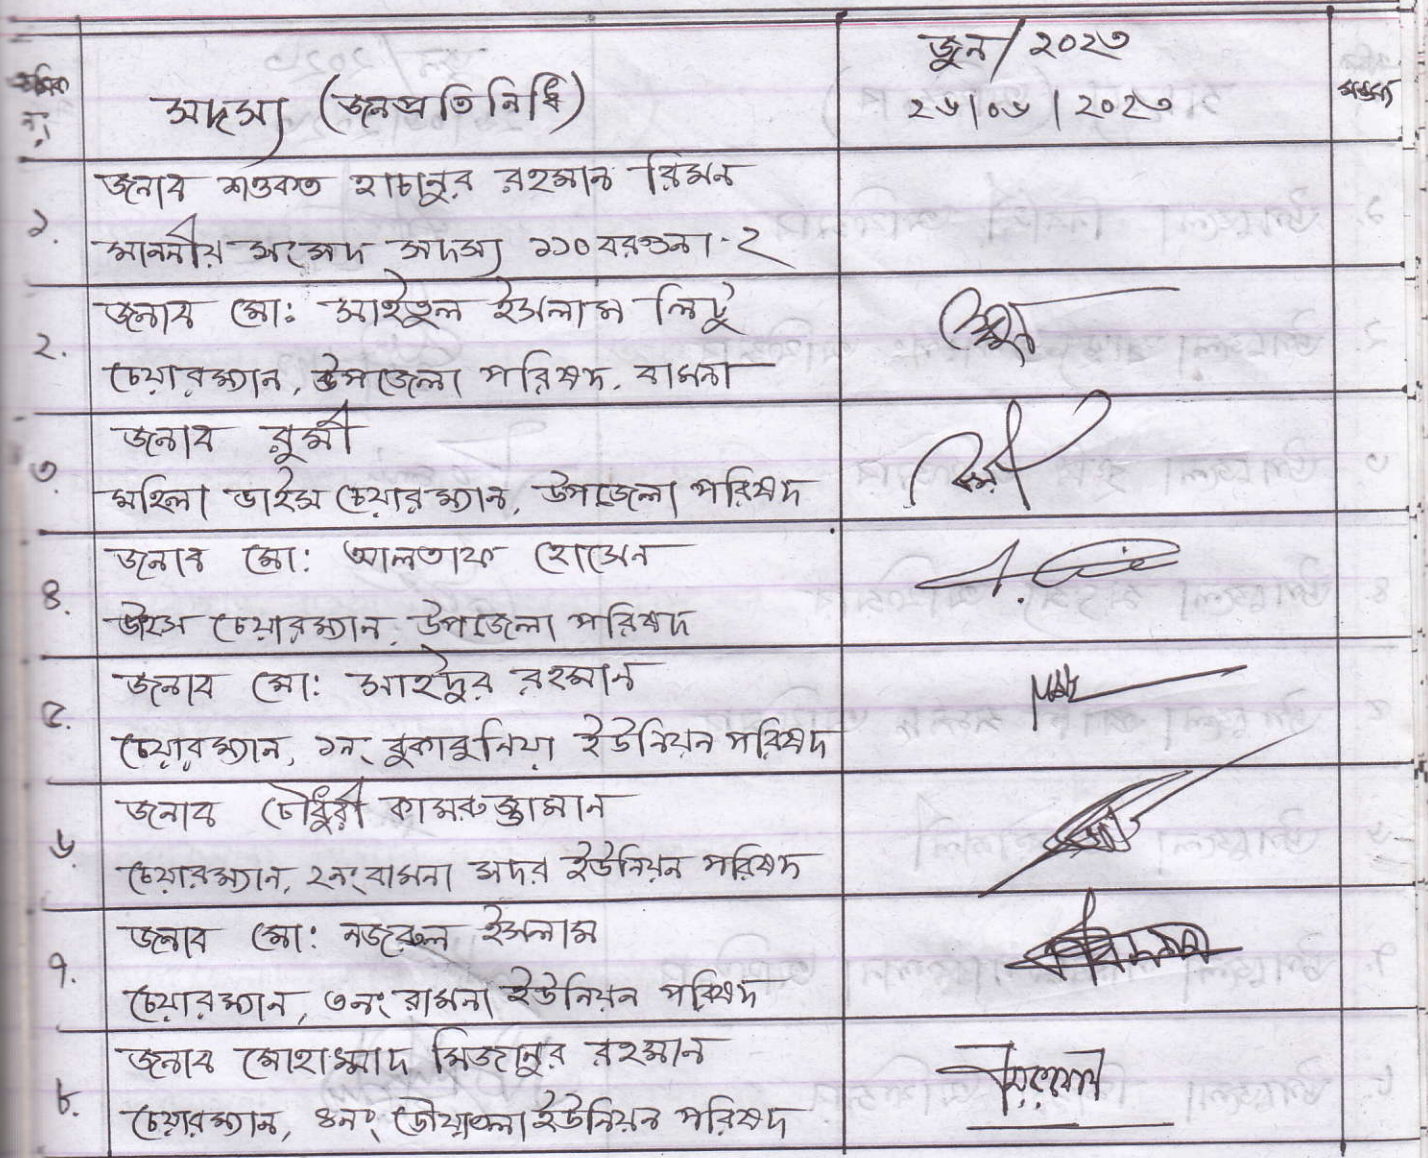 জুন/২০২৩
ক্রমিক নং
সদস্য (জনপ্রতিনিধি)
২৬/০৬/২০২৩
মন্তব্য
জনাব শওকত হাচানুর রহমান রিমন
১.
মাননীয় সংসদ সদস্য ১১০ বরগুনা-২
জনাব মো: সাইতুল ইসলাম লিটু
২.
চেয়ারম্যান, উপজেলা পরিষদ, বামনা
জনাব রুমী
৩.
মহিলা ভাইস চেয়ারম্যান, উপজেলা পরিষদ
জনাব মো: আলতাফ হোসেন
৪.
ভাইস চেয়ারম্যান, উপজেলা পরিষদ
জনাব মো: সাইদুর রহমান
৫.
চেয়ারম্যান, ১নং বুকাবুনিয়া ইউনিয়ন পরিষদ
জনাব চৌধুরী কামরুজ্জামান
৬.
চেয়ারম্যান, ২নং বামনা সদর ইউনিয়ন পরিষদ
জনাব মো: নজরুল ইসলাম
৭.
চেয়ারম্যান, ৩নং রামনা ইউনিয়ন পরিষদ
জনাব মোহাম্মাদ মিজানুর রহমান
৮.
চেয়ারম্যান, ৪নং ডৌয়াতলা ইউনিয়ন পরিষদ